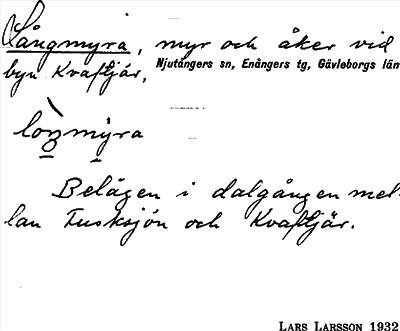 Långmyra, myr och åker vid
byn Kvaftjär, Njutångers sn, Enångers tg, Gävleborgs län
loŋmỳra
Belägen i dalgången mel-
lan Tusksjön och Kvaftjär.
LARS LARSSON 1932